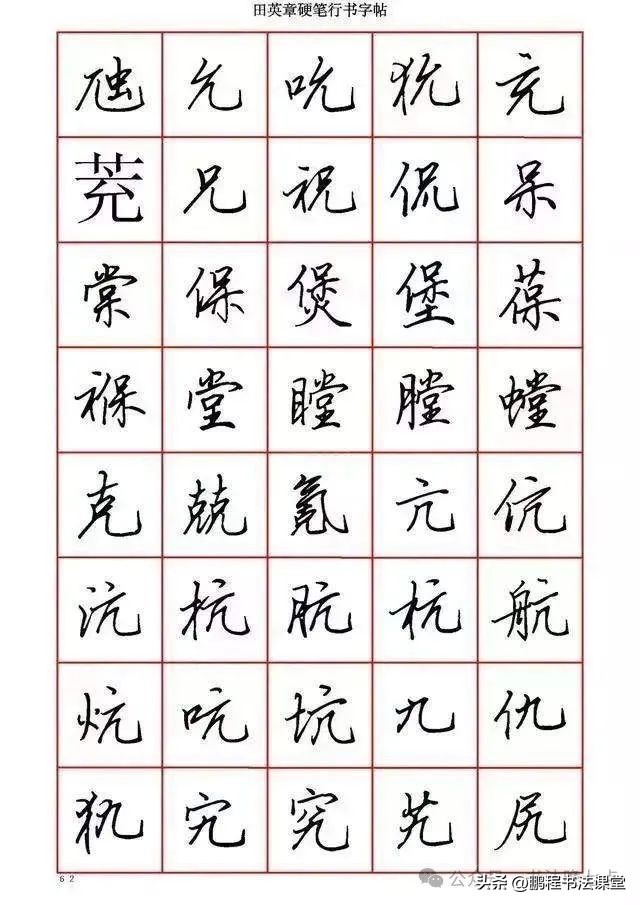 田英章硬笔行书字帖
虺 允 吮 狁 充
茺 兄 祝 侃 呆
棠 保 煲 堡 葆
褓 堂 瞠 膛 螳
克 兢 氪 亢 伉
沆 抗 肮 杭 航
炕 吭 坑 九 仇
犰 宄 究 艽 尻
62
头条@鹏程书法课堂